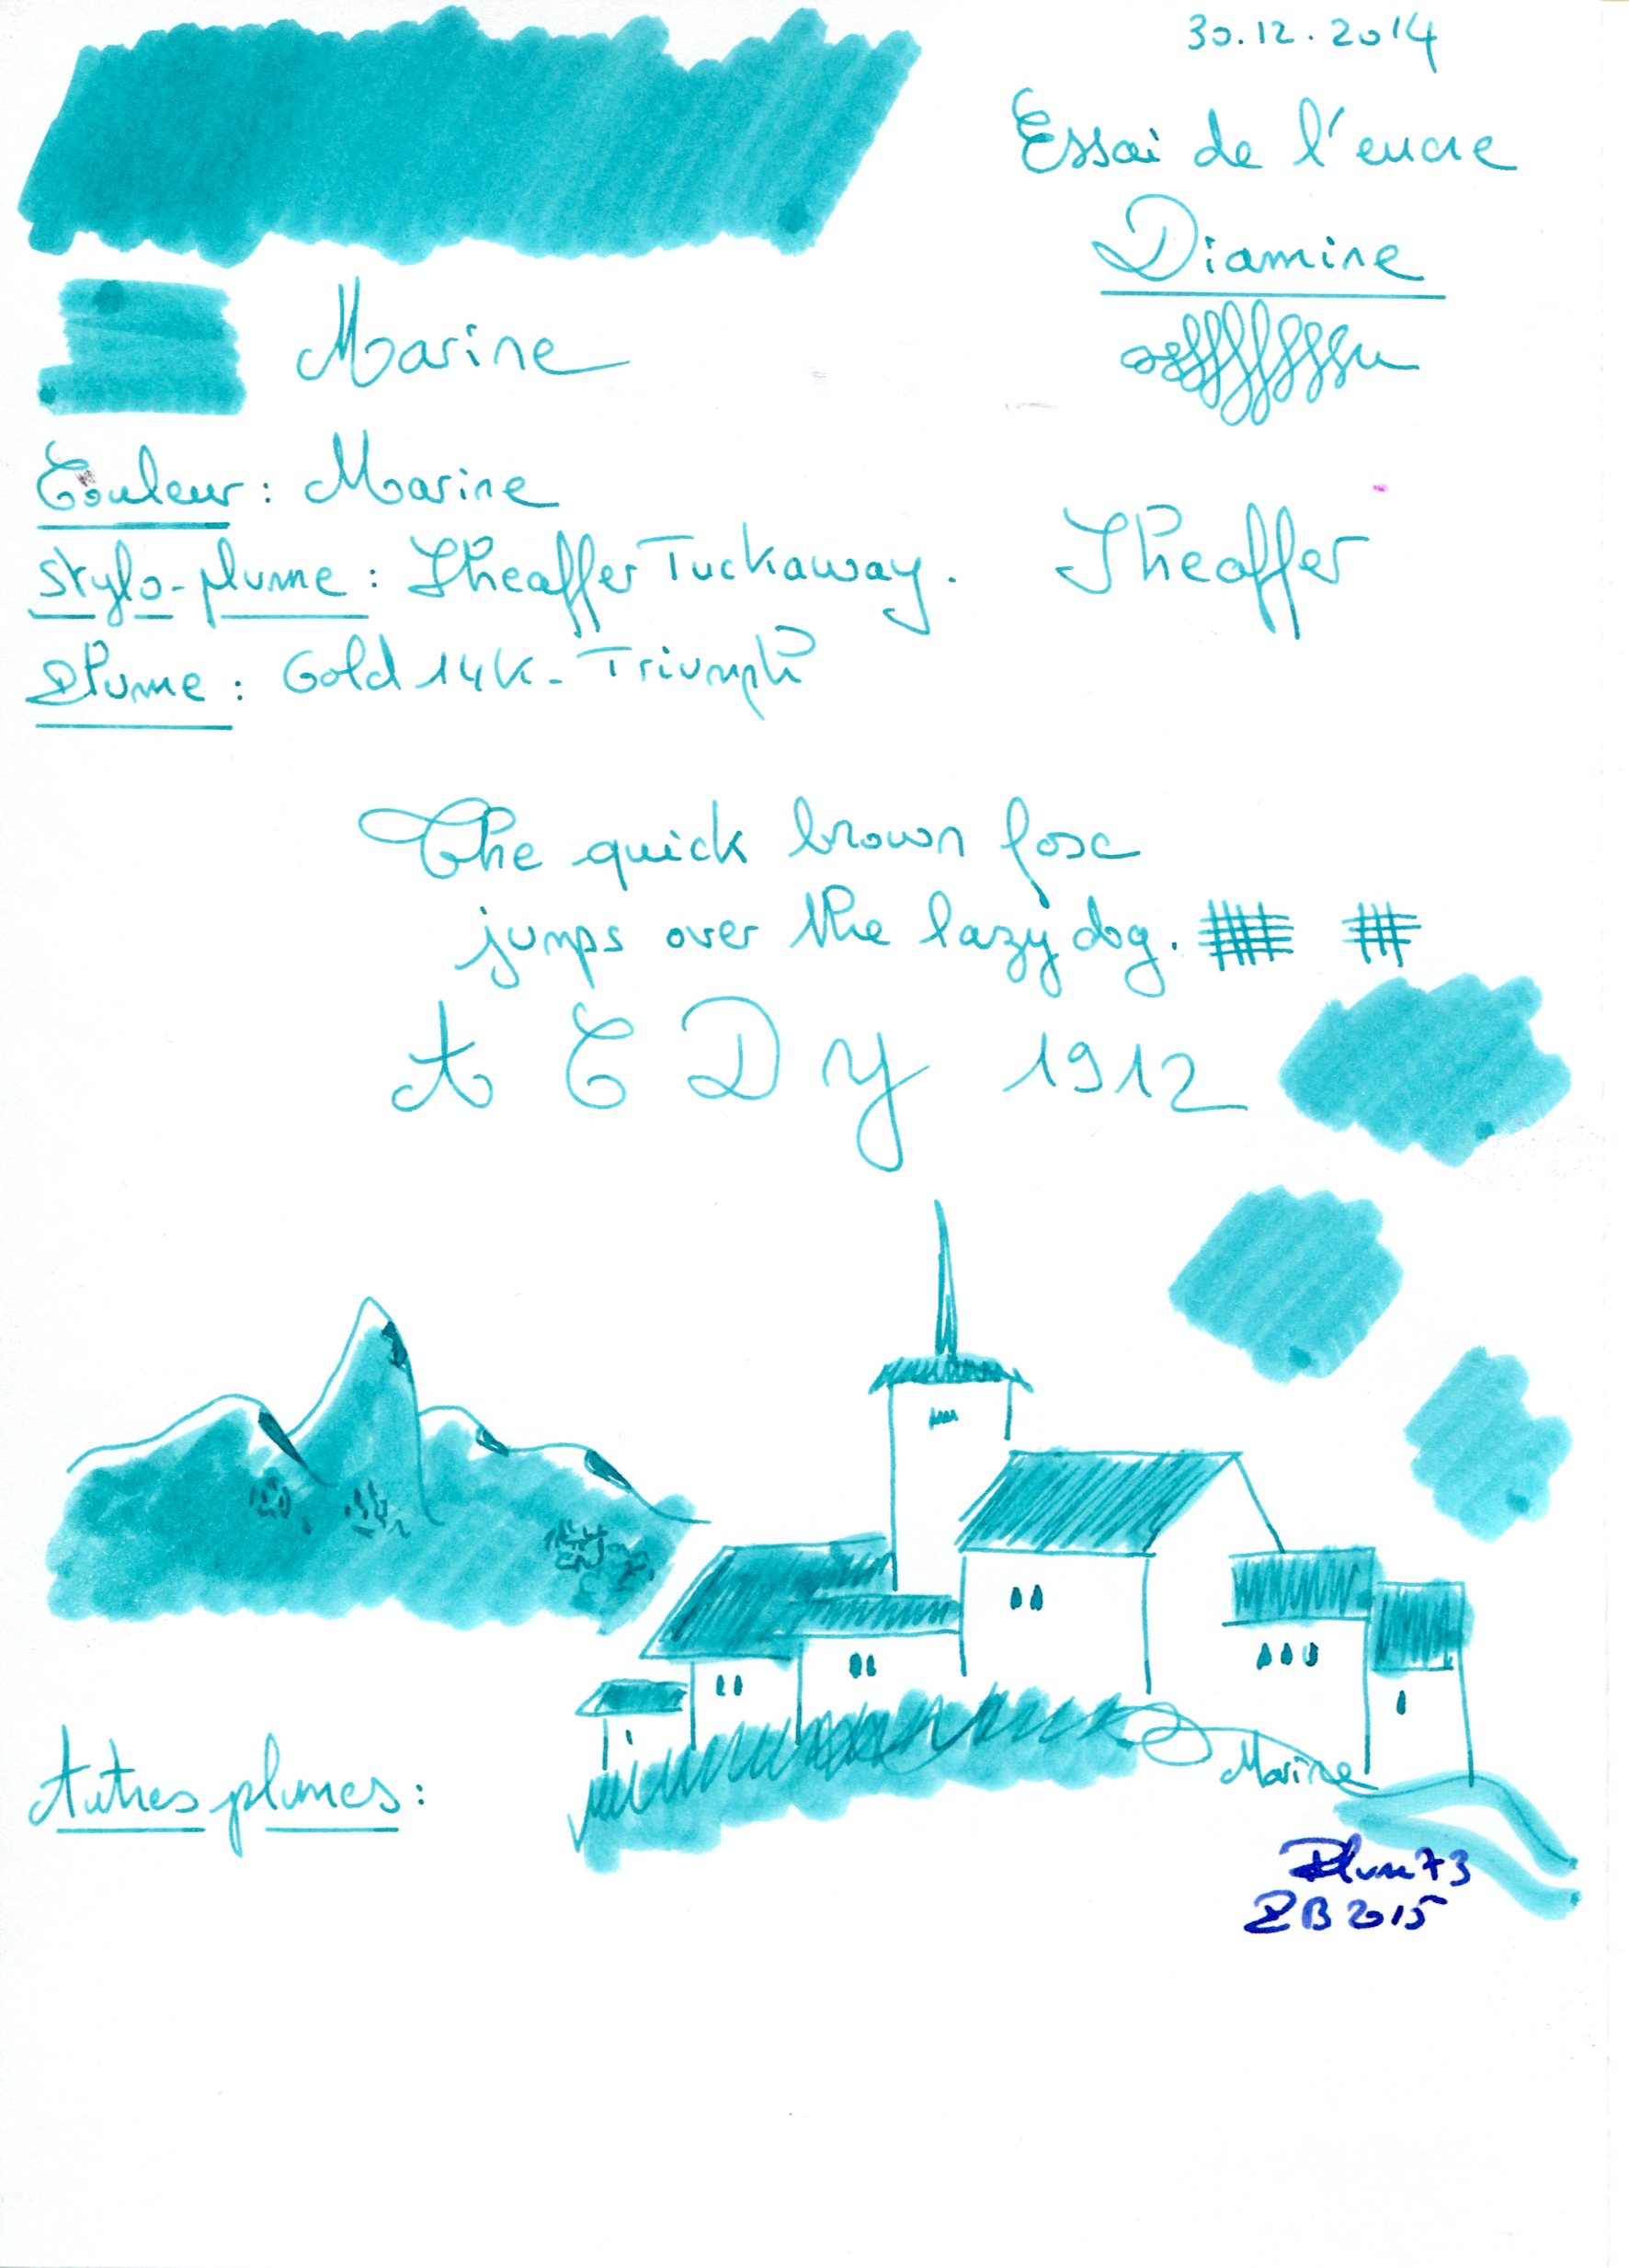 30.12.2014
Essai de l'encre
Diamine
Marine
Couleur : Marine
Stylo-plume : Sheaffer Tuckaway.
Sheaffer
Plume : Gold 14K - Triumph
The quick brown fox
jumps over the lazy dog.
A C D Y 1912
Marine
Autres plumes :
Plum73
PB 2015